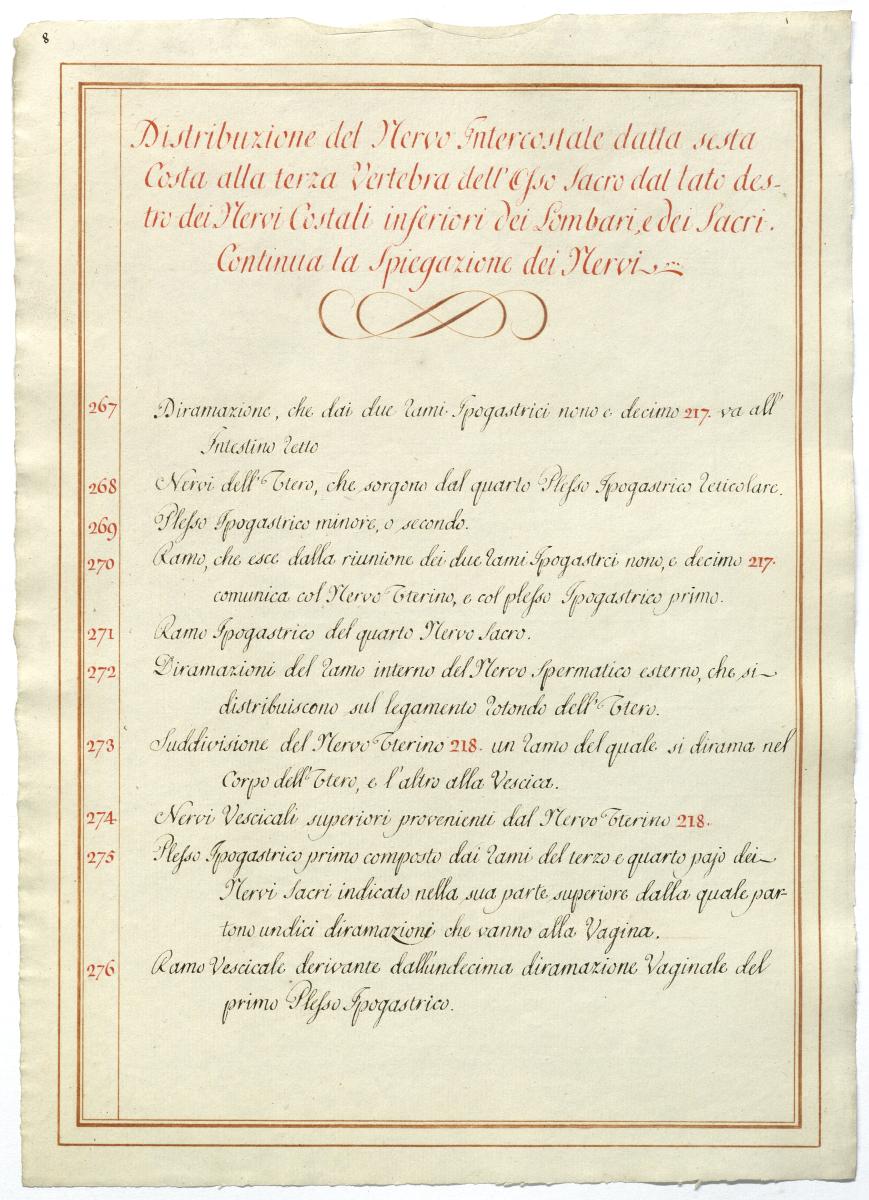 8
Distribuzione del Nervo Intercostale dalla sesta
Costa alla terza Vertebra dell'Osso Sacro dal lato des-
tro dei Nervi Costali inferiori dei Lombari, e dei Sacri.
Continua la Spiegazione dei Nervi
267 Diramazione, che dai due rami Ipogastrici nono e decimo 217. va all'
Intestino retto
268 Nervi dell'Utero, che sorgono dal quarto Plesso Ipogastrico reticolare.
269 Plesso Ipogastrico minore, o secondo.
270 Ramo, che esce dalla riunione dei due rami Ipogastrci nono, e decimo 217.
comunica col Nervo Uterino, e col plesso Ipogastrico primo.
271 Ramo Ipogastrico del quarto Nervo Sacro.
272 Diramazioni del ramo interno del Nervo Spermatico esterno, che si
distribuiscono sul legamento rotondo dell'Utero.
273 Suddivisione del Nervo Uterino 218. un ramo del quale si dirama nel
Corpo dell'Utero, e l'altro alla Vescica.
274 Nervi Vescicali superiori provenienti dal Nervo Uterino 218.
275 Plesso Ipogastrico primo composto dai rami del terzo e quarto pajo dei
Nervi Sacri indicato nella sua parte superiore dalla quale par-
tono undici diramazioni che vanno alla Vagina.
276 Ramo Vescicale derivante dall'undecima diramazione Vaginale del
primo Plesso Ipogastrico.